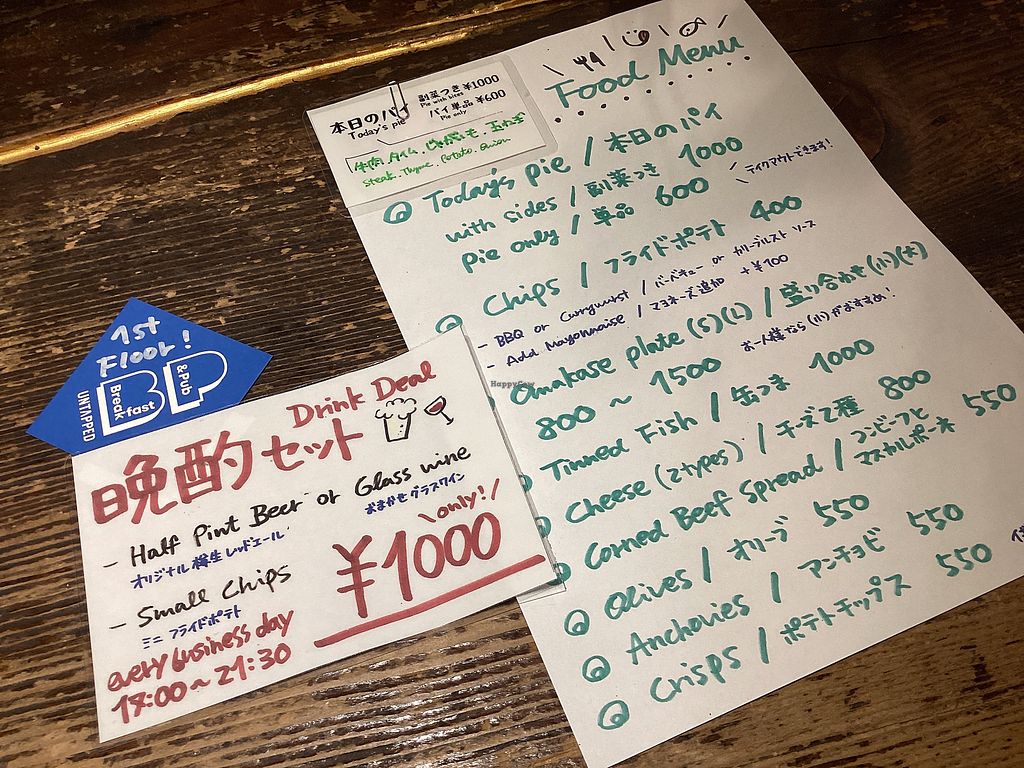 本日のパイ 副菜つき ¥1000
Today's pie Pie with sides
パイ単品 ¥600
Pie only
牛肉.タイム.じゃがいも.玉ねぎ
Steak. Thyme. Potato. Onion
Food Menu
Today's pie / 本日のパイ
with sides / 副菜つき 1000
pie only / 単品 600
テイクアウトできます!
Chips / フライドポテト 400
- BBQ or Currywurst / バーベキュー or カリーブルスト ソース
- Add Mayonnaise / マヨネーズ追加 +¥100
Omakase plate (S)(L) / 盛り合わせ (小)(大)
800 ~ 1500
お一人様なら(小)がおすすめ!
Tinned Fish / 缶つま 1000
Cheese (2types) / チーズ2種 800
Corned Beef Spread / コンビーフと マスカルポーネ 550
Olives / オリーブ 550
Anchovies / アンチョビ 550
Crisps / ポテトチップス 550
1st
Floor!
UNTAPPED
Breakfast
& Pub
BP
Drink Deal
晩酌セット
- Half Pint Beer or Glass wine
オリジナル樽生レッドエール おまかせグラスワイン
- Small Chips
ミニ フライドポテト
only!
¥1000
every business day
18:00~21:30
HappyCow